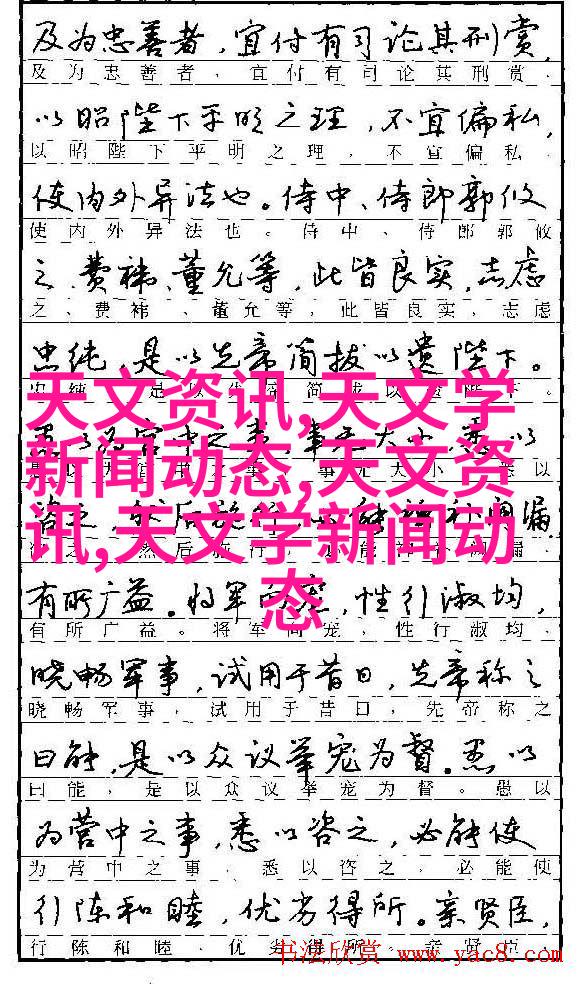 及为忠善者，宜付有司论其刑赏，
及为忠善者，宜付有司论其刑赏，
以昭陛下平明之理，不宜偏私，
以昭陛下平明之理，不宜偏私，
使内外异法也。侍中、侍郎郭攸
使内外异法也。侍中、侍郎郭攸
之、费祎、董允等，此皆良实，志虑
之、费祎、董允等，此皆良实，志虑
忠纯，是以先帝简拔以遗陛下。
天文资讯,天文学
事，事无大小，悉以
新闻动态,天文资
讯,天文学新闻动
漏
态
有所广益。将军向宠，性行淑均，
有所广益。将军向宠，性行淑均，
晓畅军事，试用于昔日，先帝称之
晓畅军事，试用于昔日，先帝称之
曰能，是以众议举宠为督。愚以
曰能，是以众议举宠为督。愚以
为营中之事，悉以咨之，必能使
为营中之事，悉以咨之，必能使
行陈和睦，优劣得所。亲贤臣，
行陈和睦，优劣得所。亲贤臣，
书法欣赏 www.yac8.com